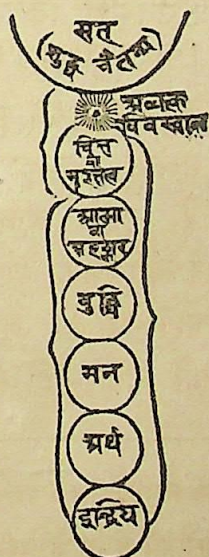 सत्
(शुद्ध चैतन्य)
अव्यक्त
विवस्वान
चित्त
वा
महत्तत्व
आत्मा
वा
अहङ्कार
बुद्धि
मन
अर्थ
इन्द्रिय